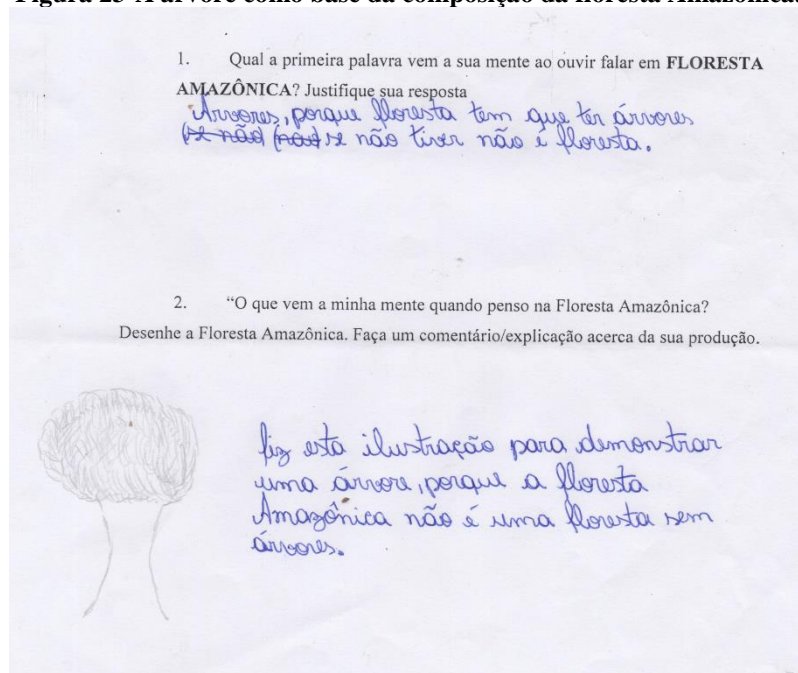 Figura 25-A árvore como base da composição da floresta Amazônica.
1. Qual a primeira palavra vem a sua mente ao ouvir falar em FLORESTA
AMAZÔNICA? Justifique sua resposta
Árvores, porque floresta tem que ter árvores
(se não) (não) se não tiver não é floresta.
2. “O que vem a minha mente quando penso na Floresta Amazônica?
Desenhe a Floresta Amazônica. Faça um comentário/explicação acerca da sua produção.
fiz esta ilustração para demonstrar
uma árvore, porque a floresta
Amazônica não é uma floresta sem
árvores.